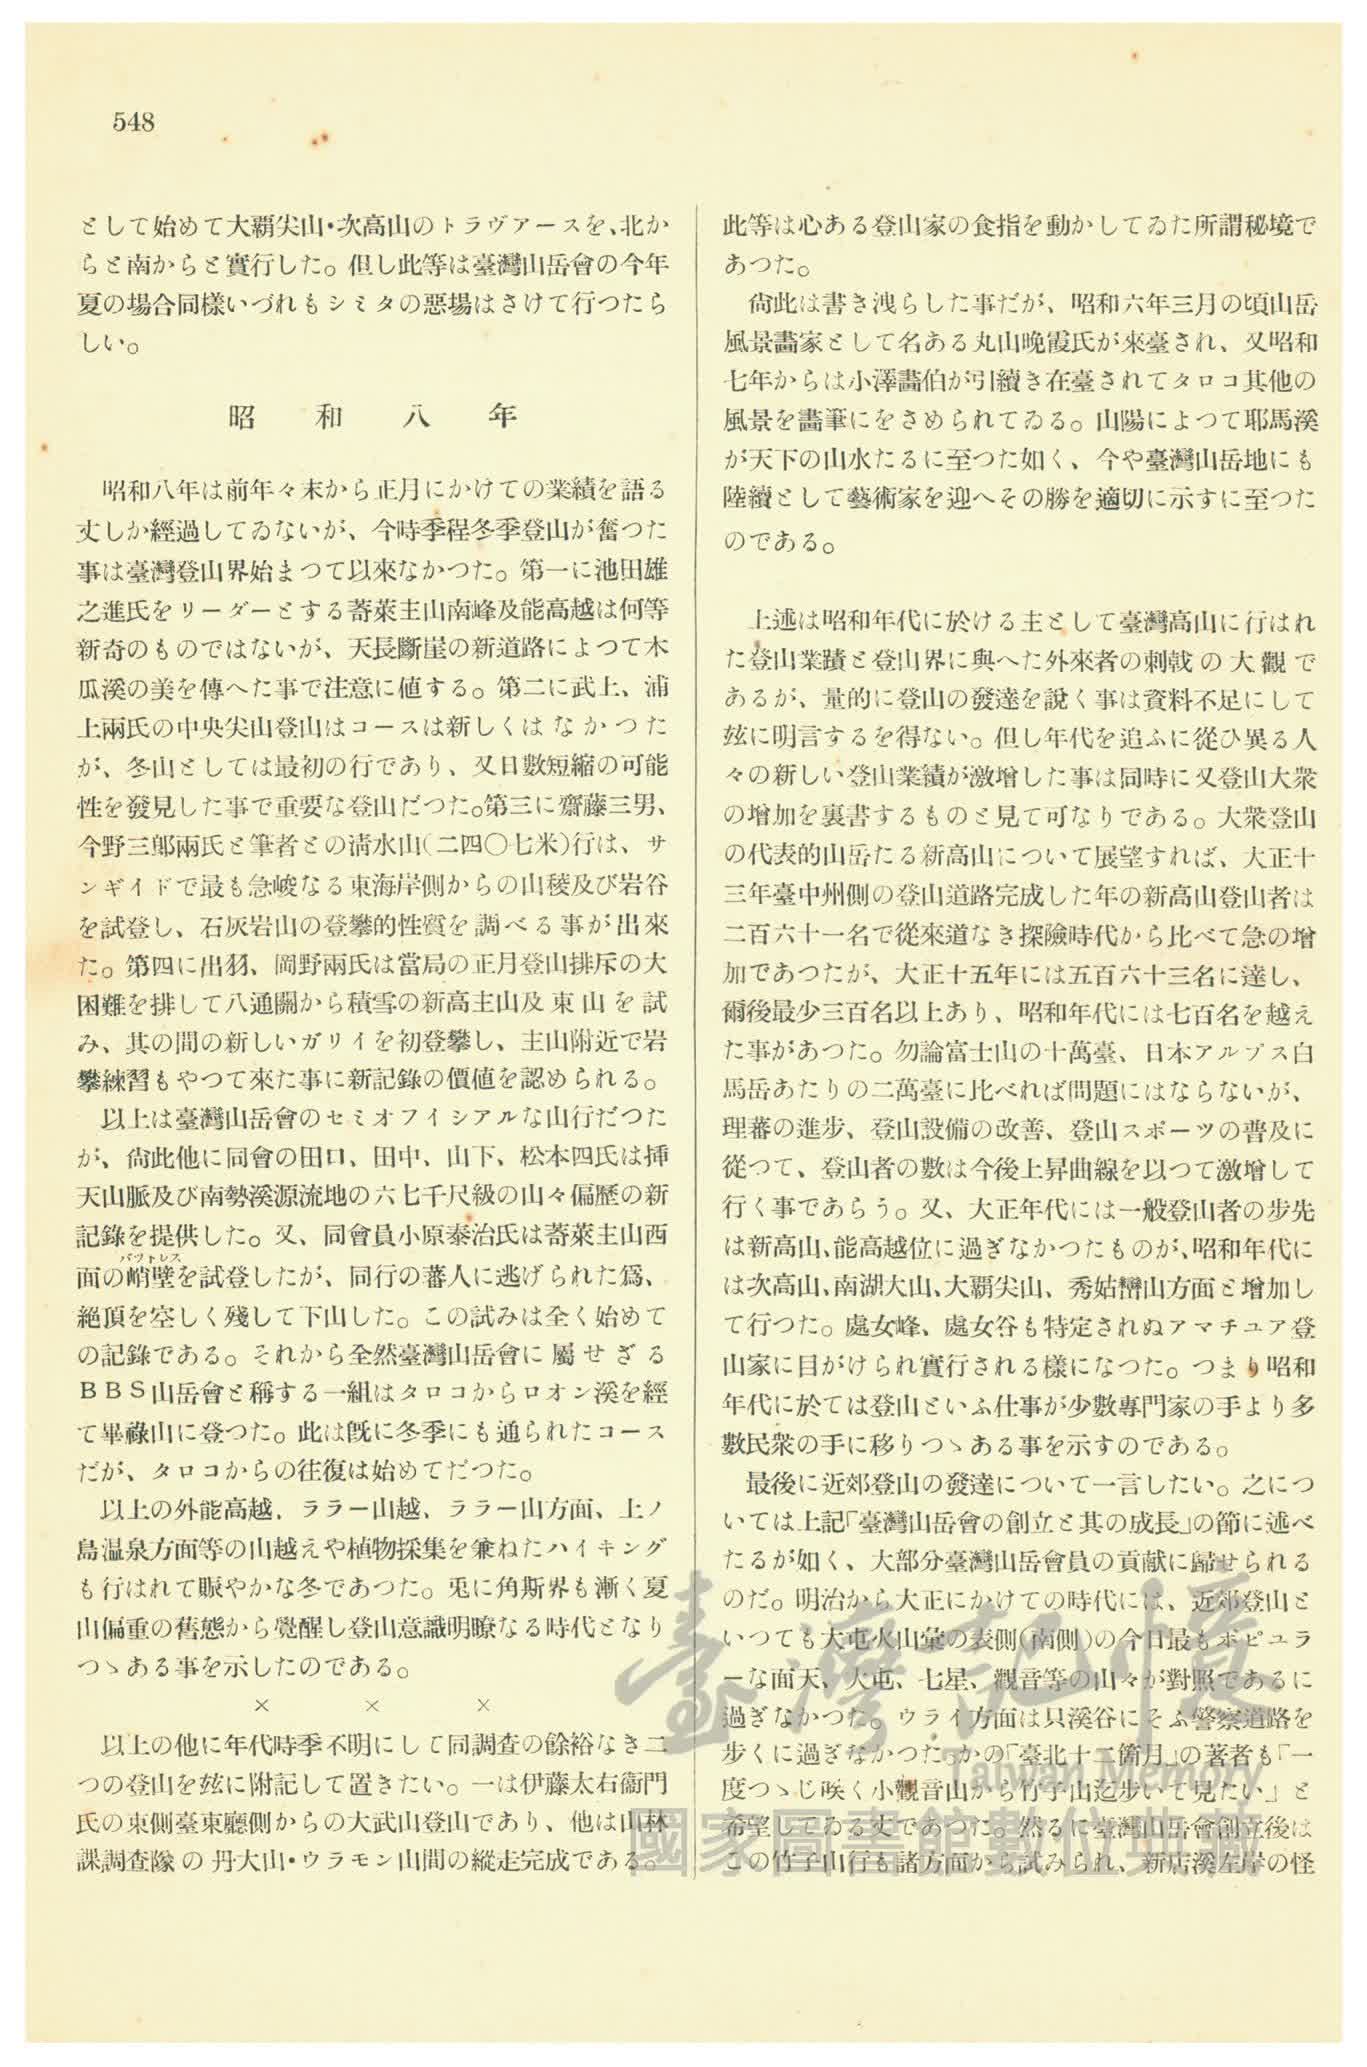 548
として始めて大覇尖山・次高山のトラヴアースを、北か
らと南からと實行した。但し此等は臺灣山岳會の今年
夏の場合同樣いづれもシミタの惡場はさけて行つたら
しい。
昭和八年
昭和八年は前年々末から正月にかけての業績を語る
丈しか經過してゐないが、今時季程冬季登山が奮つた
事は臺灣登山界始まつて以來なかつた。第一に池田雄
之進氏をリーダーとする蒼萊主山南峰及能高越は何等
新奇のものではないが、天長斷崖の新道路によつて木
瓜溪の美を傳へた事で注意に値する。第二に武上、浦
上兩氏の中央尖山登山はコースは新しくはなかつた
が、冬山としては最初の行であり、又日數短縮の可能
性を發見した事で重要な登山だつた。第三に齋藤三男、
今野三郞兩氏と筆者との淸水山(二四〇七米)行は、サ
ンギイドで最も急峻なる東海岸側からの山稜及び岩谷
を試登し、石灰岩山の登攀的性質を調べる事が出來
た。第四に出羽、岡野兩氏は當局の正月登山排斥の大
困難を排して八通關から積雪の新高主山及東山を試
み、其の間の新しいガリイを初登攀し、主山附近で岩
攀練習もやつて來た事に新記錄の價値を認められる。
以上は臺灣山岳會のセミオフイシアルな山行だつた
が、尙此他に同會の田口、田中、山下、松本四氏は揷
天山脈及び南勢溪源流地の六七千尺級の山々偏歷の新
記錄を提供した。又、同會員小原泰治氏は蒼萊主山西
面の峭壁を試登したが、同行の蕃人に逃げられた爲、
バツトレス
絕頂を空しく殘して下山した。この試みは全く始めて
の記錄である。それから全然臺灣山岳會に屬せざる
BBS山岳會と稱する一組はタロコからロオン溪を經
て畢祿山に登つた。此は旣に冬季にも通られたコース
だが、タロコからの往復は始めてだつた。
以上の外能高越、ララー山越、ララー山方面、上ノ
島溫泉方面等の山越えや植物採集を兼ねたハイキング
も行はれて賑やかな冬であつた。兎に角斯界も漸く夏
山偏重の舊態から覺醒し登山意識明瞭なる時代となり
つゝある事を示したのである。
× × ×
以上の他に年代時季不明にして同調査の餘裕なき二
つの登山を玆に附記して置きたい。一は伊藤太右衞門
氏の東側臺東廳側からの大武山登山であり、他は山林
課調查隊の丹大山・ウラモン山間の縱走完成である。
此等は心ある登山家の食指を動かしてゐた所謂秘境で
あつた。
尙此は書き洩らした事だが、昭和六年三月の頃山岳
風景畫家として名ある丸山晩霞氏が來臺され、又昭和
七年からは小澤畵伯が引續き在臺されてタロコ其他の
風景を畵筆にをさめられてゐる。山陽によつて耶馬溪
が天下の山水たるに至つた如く、今や臺灣山岳地にも
陸續として藝術家を迎へその勝を適切に示すに至つた
のである。
上述は昭和年代に於ける主として臺灣高山に行はれ
た登山業蹟と登山界に與へた外來者の刺戟の大觀で
あるが、量的に登山の發達を說く事は資料不足にして
玆に明言するを得ない。但し年代を追ふに從ひ異る人
々の新しい登山業績が激增した事は同時に又登山大衆
の增加を裏書するものと見て可なりである。大衆登山
の代表的山岳たる新高山について展望すれば、大正十
三年臺中州側の登山道路完成した年の新高山登山者は
二百六十一名で從來道なき探險時代から比べて急の增
加であつたが、大正十五年には五百六十三名に達し、
爾後最少三百名以上あり、昭和年代には七百名を越え
た事があつた。勿論富士山の十萬臺、日本アルプス白
馬岳あたりの二萬臺に比べれば問題にはならないが、
理蕃の進步、登山設備の改善、登山スポーツの普及に
從つて、登山者の數は今後上昇曲線を以つて激增して
行く事であらう。又、大正年代には一般登山者の步先
は新高山、能高越位に過ぎなかつたものが、昭和年代に
は次高山、南湖大山、大覇尖山、秀姑巒山方面と增加し
て行つた。處女峰、處女谷も特定されぬアマチユア登
山家に目がけられ實行される樣になつた。つまり昭和
年代に於ては登山といふ仕事が少數專門家の手より多
數民衆の手に移りつゝある事を示すのである。
最後に近郊登山の發達について一言したい。之につ
いては上記「臺灣山岳會の創立と其の成長」の節に述べ
たるが如く、大部分臺灣山岳會員の貢献に歸せられる
のだ。明治から大正にかけての時代には、近郊登山と
いつても大屯火山彙の表側(南側)の今日最もポピユラ
ーな面天、大屯、七星、觀音等の山々が對照であるに
過ぎなかつた。ウライ方面は只溪谷にそふ警察道路を
步くに過ぎなかつた。かの「臺北十二箇月」の著者も「一
度つゝじ咲く小觀音山から竹子山迄步いて見たい」と
希望してゐる丈であつた。然るに臺灣山岳會創立後は
この竹子山行も諸方面から試みられ、新店溪左岸の怪
臺灣記憶
Taiwan Memory
國家圖書館數位典藏